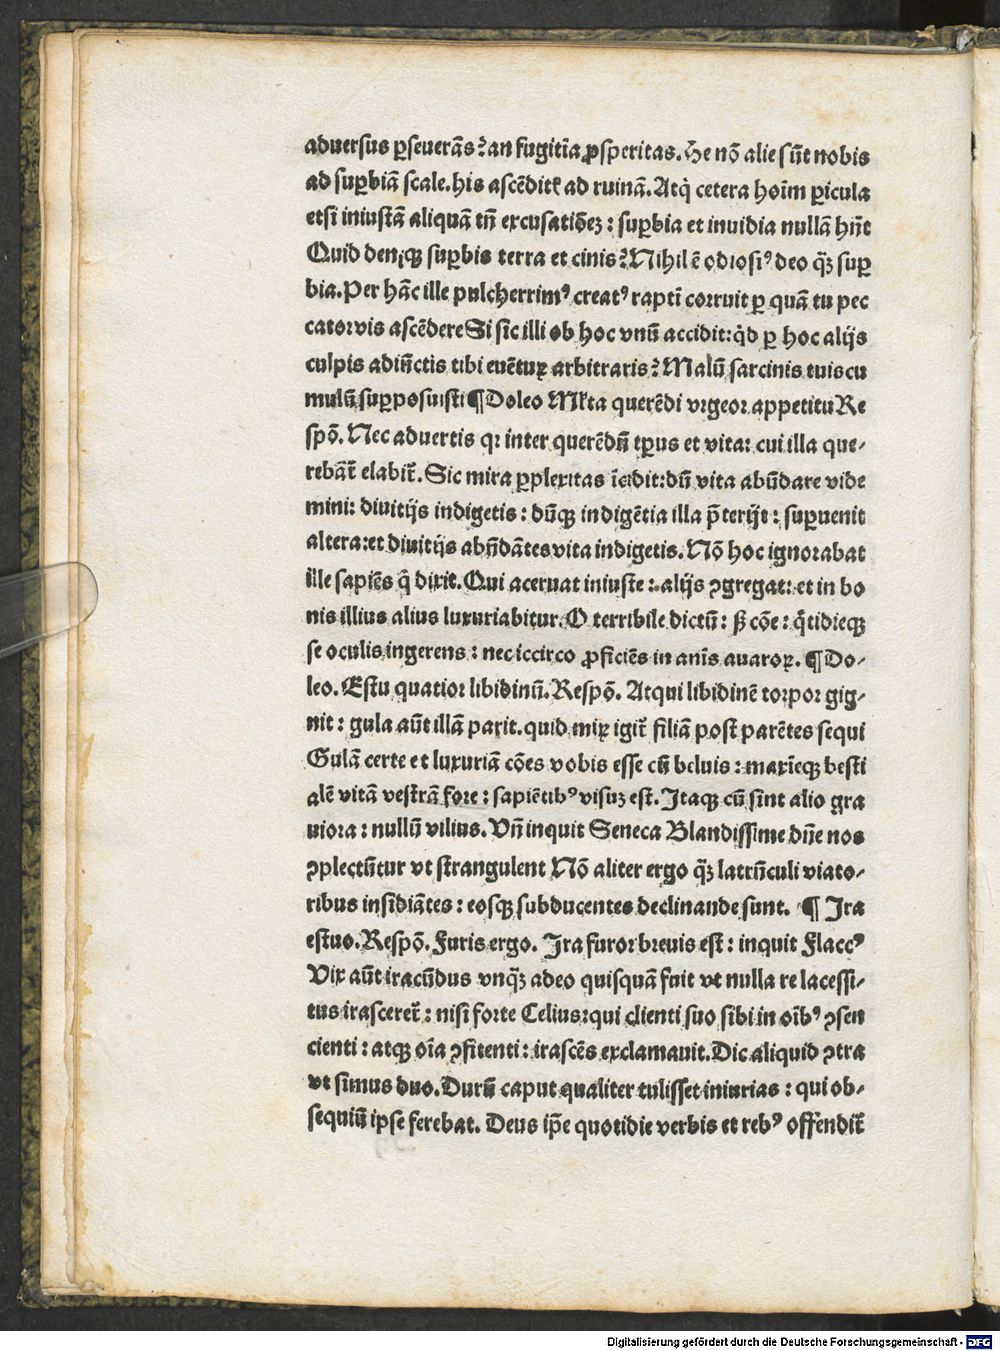 aduersus ꝑseuerās? an fugitīa ꝓsperitas. He nō alie sūt nobis
ad suꝑbiā scale. his ascēditꝭ ad ruinā. Atq̇ cetera hoīm ꝑicula
etsi iniustā aliquā tn̄ excusatiōeꝫ : suꝑbia et inuidia nullā hn̄t
Quid deniqꝫ suꝑbis terra et cinis? Nihil ē odiosiꝰ deo q̄ꝫ suꝑ
bia. Per hāc ille pulcherrimꝰ creatꝰ raptī corruit ꝑ quā tu pec
cator vis ascēdere Si sic illi ob hoc vnū accidit: q̇d ꝑ hoc alijs
culpis adiūctis tibi euētuꝝ arbitraris? Malū sarcinis tuis cu
mulū suꝑposuisti ¶ Doleo Ml̓ta querēdi vrgeor appetitu Re
spō. Nec aduertis qꝛ inter querēdū tꝑus et vita: cui illa que⸗
rebāt᷑ elabit᷑. Sic mira ꝑplexitas īcidit: dū vita abūdare vide
mini: diuitijs indigetis : dūqꝫ indigētia illa p̄terijt : suꝑuenit
altera: et diuitijs abūdātes vita indigetis. Nō hoc ignorabat
ille sapiēs q̇ dixit. Qui aceruat iniuste : alijs ꝯgregat: et in bo
nis illius alius luxuriabitur. O terribile dictū : sꝫ cōe : q̄tidieqꝫ
se oculis ingerens : nec iccirco ꝓficiēs in anīs auaroꝝ. ¶ Do⸗
leo. Estu quatior libidinū. Respō. Atqui libidinē torpor gig⸗
nit : gula aūt illā parit. quid miꝝ igit᷑ filiā post parētes sequi
Gulā certe et luxuriā cōes vobis esse cū beluis : maxīeqꝫ besti
alē vitā vestrā fore : sapiētibꝰ visuꝫ est. Itaqꝫ cū sint alio gra
uiora : nullū vilius. Vn̄ inquit Seneca Blandissime dn̄e nos
ꝯplectūtur vt strangulent Nō aliter ergo q̄ꝫ latrūculi viato⸗
ribus insidiātes : eosqꝫ subducentes declinande sunt. ¶ Ira
estuo. Respō. Furis ergo. Ira furor breuis est : inquit Flaccꝰ
Vix aūt iracūdus vnq̄ꝫ adeo quisquā fuit vt nulla re lacessi⸗
tus irasceret᷑ : nisi forte Celius: qui clienti suo sibi in oībꝰ ꝯsen
cienti : atqꝫ oīa ꝯfitenti : irascēs exclamauit. Dic aliquid ꝯtra
vt simus duo. Durū caput qualiter tulisset iniurias : qui ob⸗
sequiū ipse ferebat. Deus ip̄e quotidie verbis et rebꝰ offendit᷑
Digitalisierung gefördert durch die Deutsche Forschungsgemeinschaft - DFG